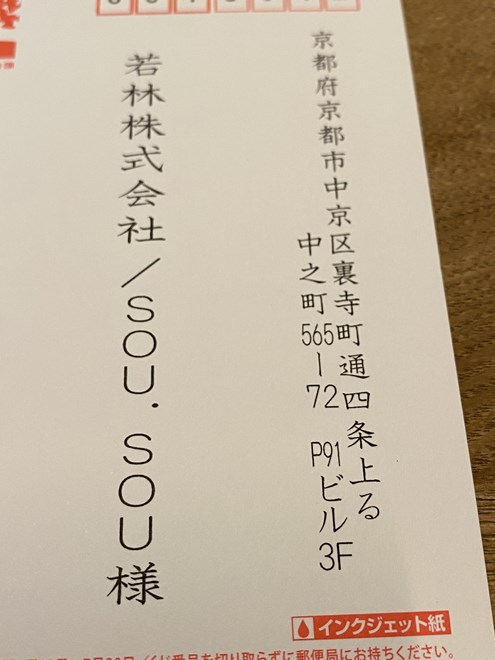 京都府京都市中京区裏寺町通四条上る
中之町565-72 P91ビル3F
若林株式会社/SOU・SOU様
インクジェット紙
くじ番号を切り取らずに郵便局にお持ちください。